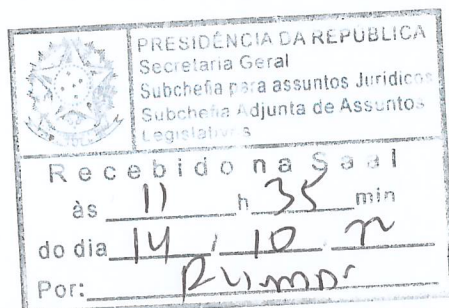 PRESIDÊNCIA DA REPUBLICA
Secretaria Geral
Subchefia para assuntos Juridicos
Subchefia Adjunta de Assuntos
Legislativos
Recebido na Saal
às 11 h 35 min
do dia 14 / 10
Por: